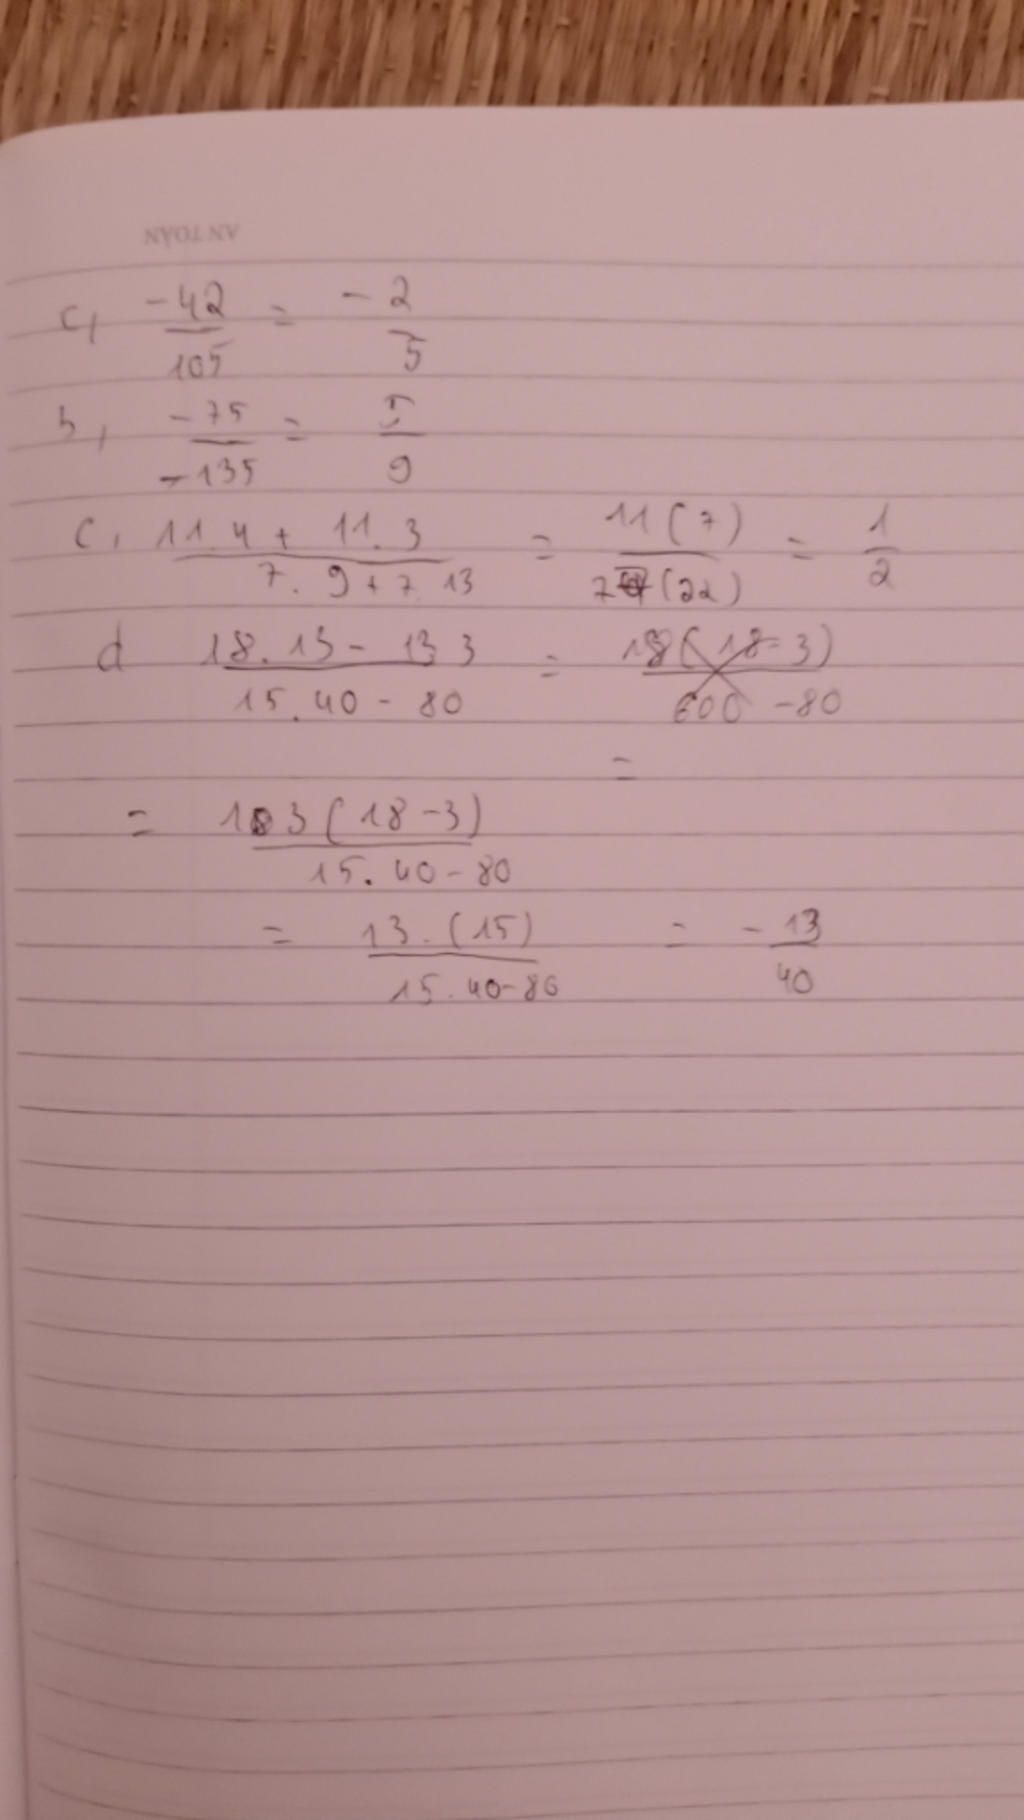 AN TOÀN
c, -42/105 = -2/5
b, -75/-135 = 5/9
c, 11.4 + 11.3 / 7.9 + 7.13 = 11(7) / 7(22) = 1/2
d 18.13 - 13 3 / 15.40 - 80 = 18(18-3) / 600 - 80
=
= 13(18-3) / 15.40 - 80
= 13.(15) / 15.40-80 = -13/40